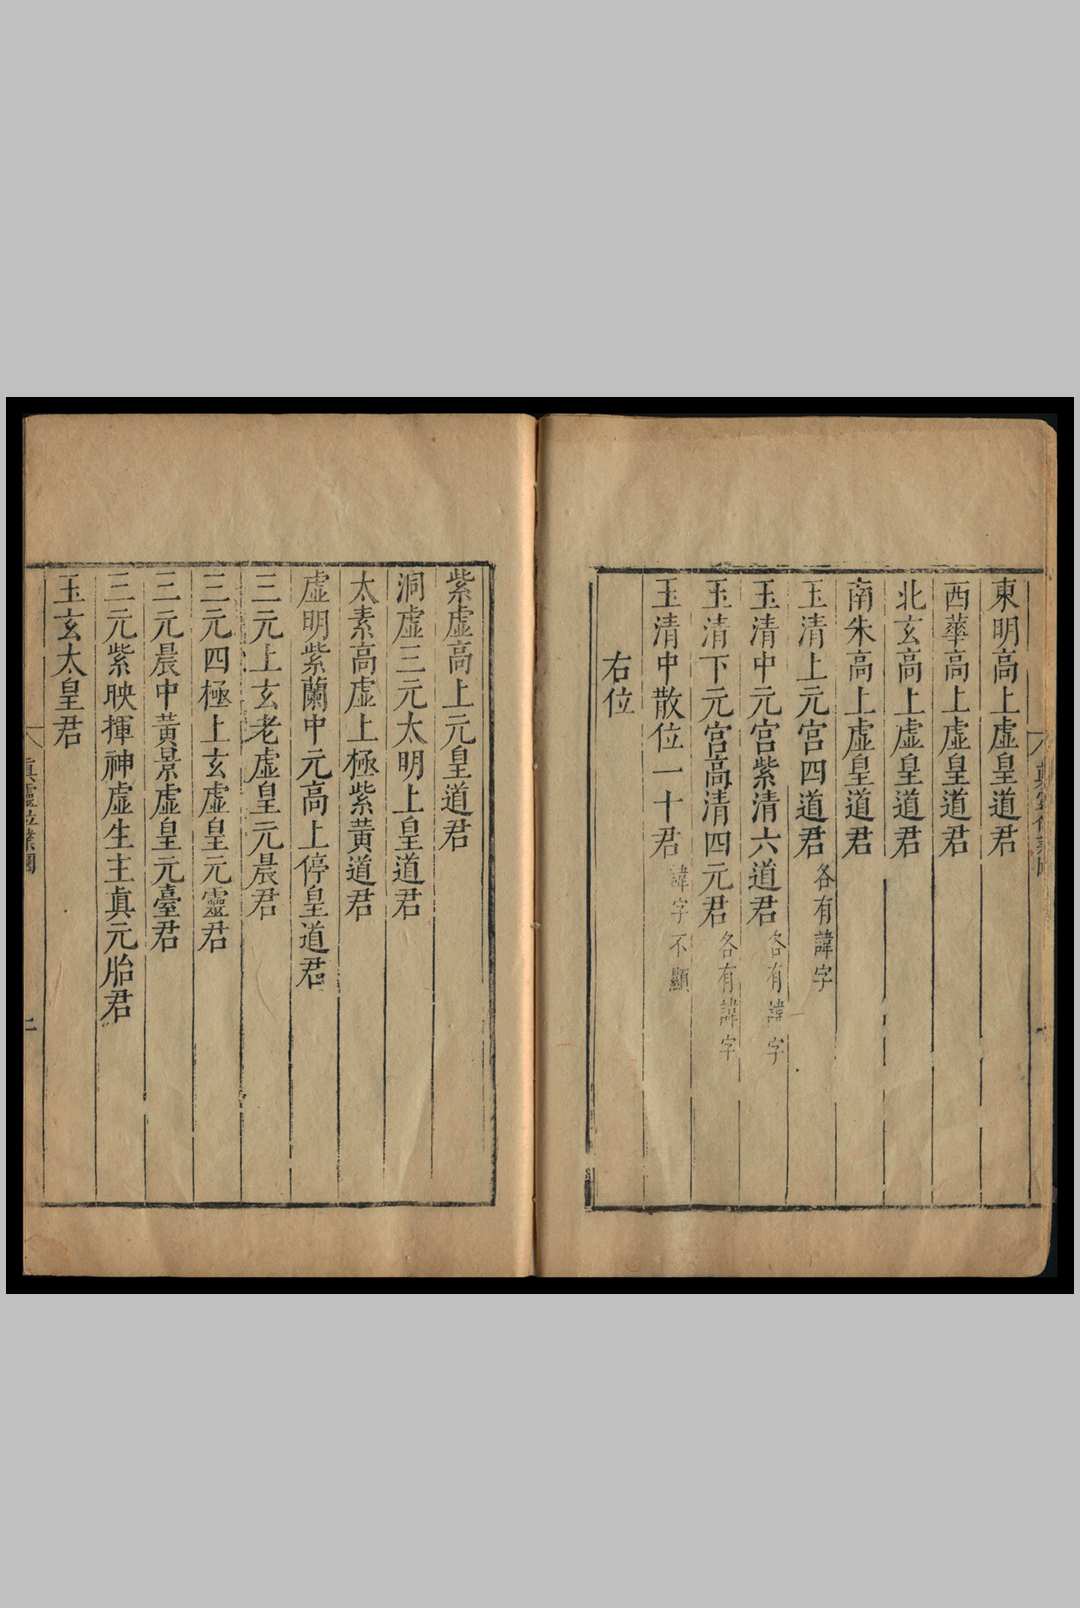 東明高上虛皇道君
西華高上虛皇道君
北玄高上虛皇道君
南朱高上虛皇道君
玉清上元宮四道君各有諱字
玉清中元宮紫清六道君各有諱字
玉清下元宮高清四元君各有諱字
玉清中散位一十君諱字不顯
右位
紫虛高上元皇道君
洞虛三元太明上皇道君
太素高虛上極紫黃道君
虛明紫蘭中元高上停皇道君
三元上玄老虛皇元晨君
三元四極上玄虛皇元靈君
三元晨中黃景虛皇元臺君
三元紫映揮神虛生主真元胎君
玉玄太皇君
真靈位業圖
二